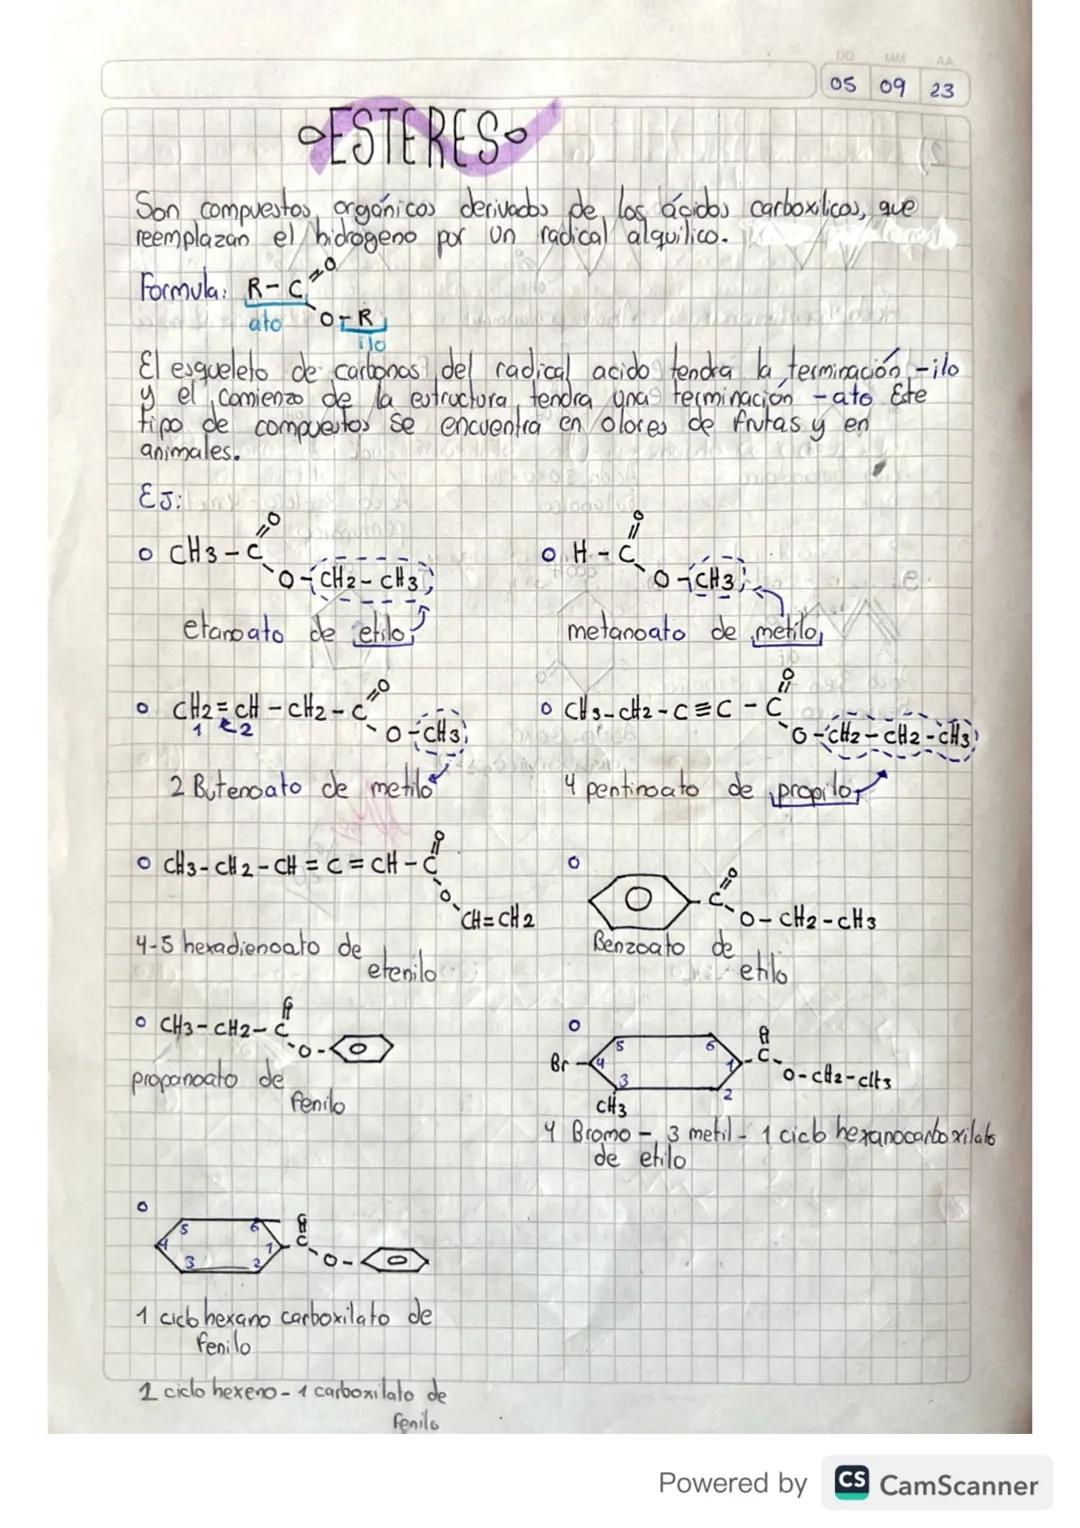 DD MM AA
05 09 23
ESTERES
Son compuestos orgánicos derivados de los ácidos carboxilicos, que
reemplazan el hidrógeno por un radical alquilico.
Formula: R - C =O
O - R
ato
ilo
El esqueleto de carbonos del radical acido tendra la terminación -ilo
y el comienzo de la estructura tendra una terminación -ato Este
tipo de compuestos se encuentra en olores de frutas y en
animales.
EJ:
CH3 - C =O
O - CH2 - CH3
etanoato de etilo
H - C =O
O - CH3
metanoato de metilo
CH2 = CH - CH2 - C =O
1 2
O - CH3
2 Butenoato de metilo
CH3 - CH2 - C ≡ C - C =O
O - CH2 - CH2 - CH3
4 pentinoato de propilo
CH3 - CH2 - CH = C = CH - C =O
O
CH = CH2
4-5 hexadienoato de
etenilo
C =O
O - CH2 - CH3
Benzoato de
etilo
CH3 - CH2 - C =O
O -
propanoato de
fenilo
5 6
Br 4 1 - C =O
3 2
O - CH2 - CH3
CH3
4 Bromo - 3 metil - 1 ciclo hexanocarboxilato
de etilo
5 6
4 1 C =O
3 2
O -
1 ciclo hexano carboxilato de
fenilo
2 ciclo hexeno - 1 carboxilato de
fenilo
Powered by CS CamScanner